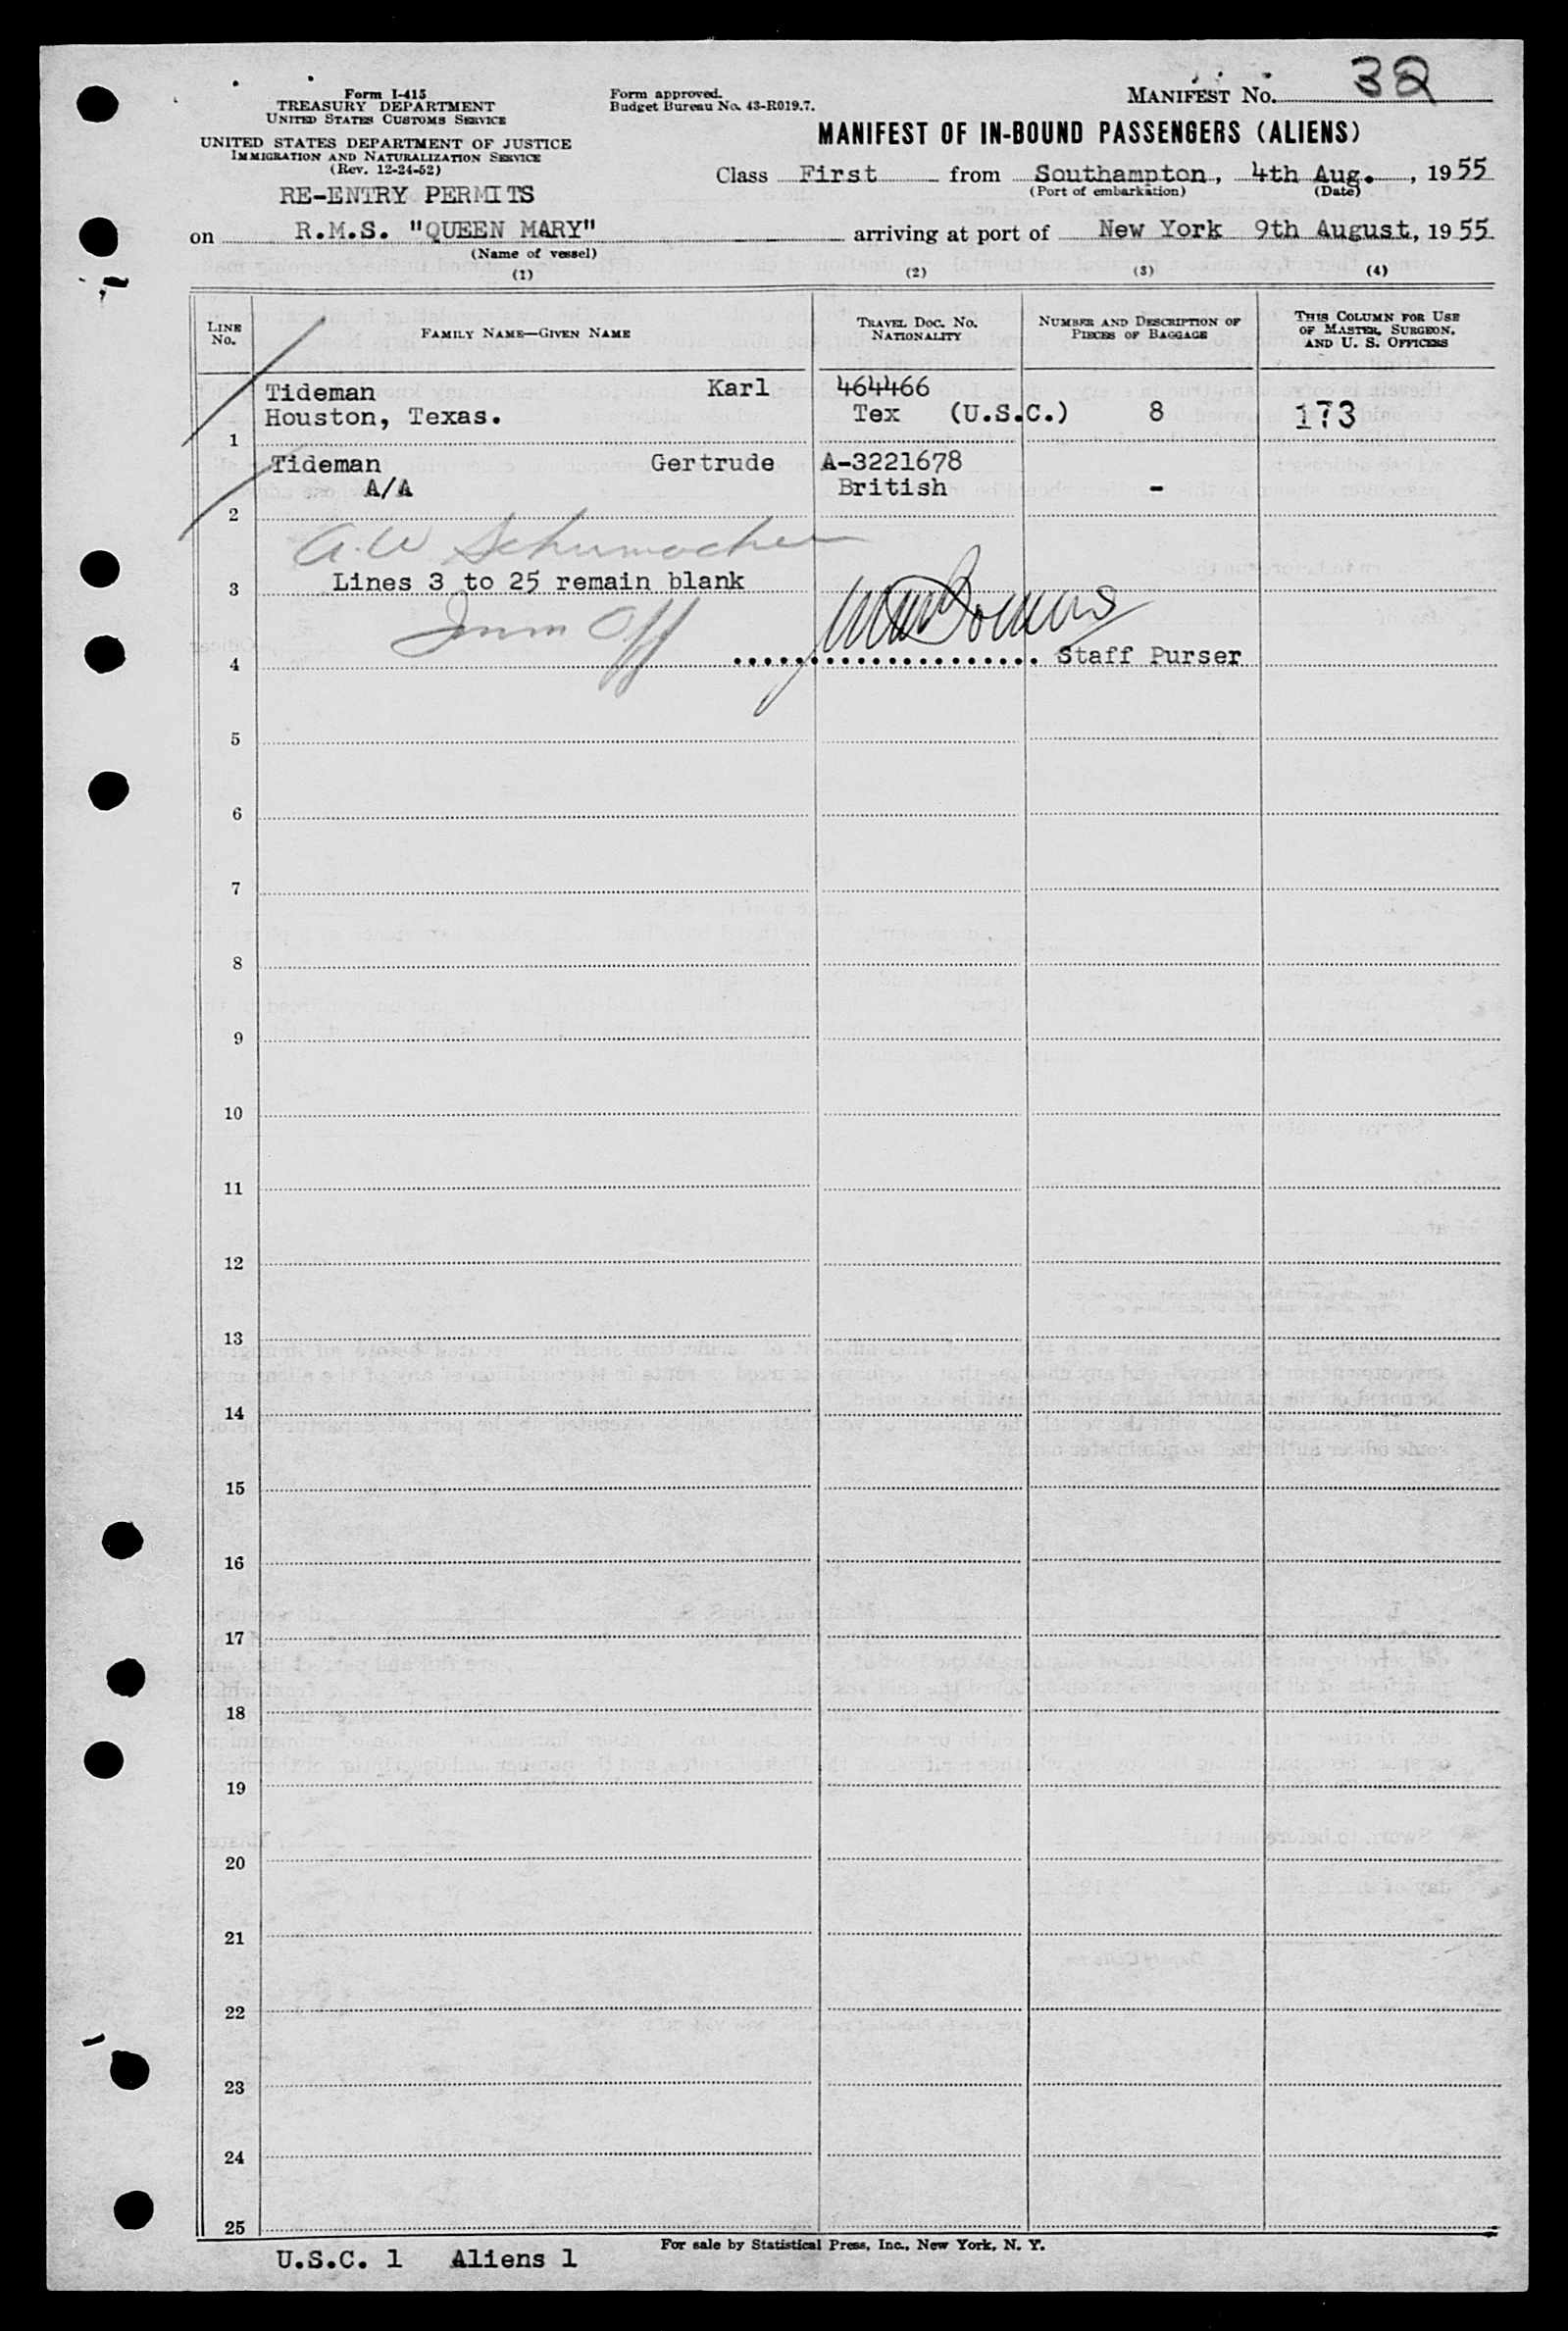 Form I-415
TREASURY DEPARTMENT
UNITED STATES CUSTOMS SERVICE
UNITED STATES DEPARTMENT OF JUSTICE
IMMIGRATION AND NATURALIZATION SERVICE
(Rev. 12-24-52)
RE-ENTRY PERMITS
Form approved.
Budget Bureau No. 43-R019.7.
MANIFEST No. 32
MANIFEST OF IN-BOUND PASSENGERS (ALIENS)
Class First from Southampton, 4th Aug., 1955
(Port of embarkation) (Date)
on R.M.S. "QUEEN MARY" arriving at port of New York 9th August, 1955
(Name of vessel)
(1) (2) (3) (4)
LINE No. FAMILY NAME—GIVEN NAME TRAVEL DOC. No. NATIONALITY NUMBER AND DESCRIPTION OF PIECES OF BAGGAGE THIS COLUMN FOR USE OF MASTER, SURGEON, AND U. S. OFFICERS
Tideman Karl 464466
Houston, Texas. Tex (U.S.C.) 8 173
1
Tideman Gertrude A-3221678
A/A British -
2
A.W Schumacher
3 Lines 3 to 25 remain blank
Imm Off
4 Staff Purser
5
6
7
8
9
10
11
12
13
14
15
16
17
18
19
20
21
22
23
24
25
For sale by Statistical Press, Inc., New York, N. Y.
U.S.C. 1 Aliens 1